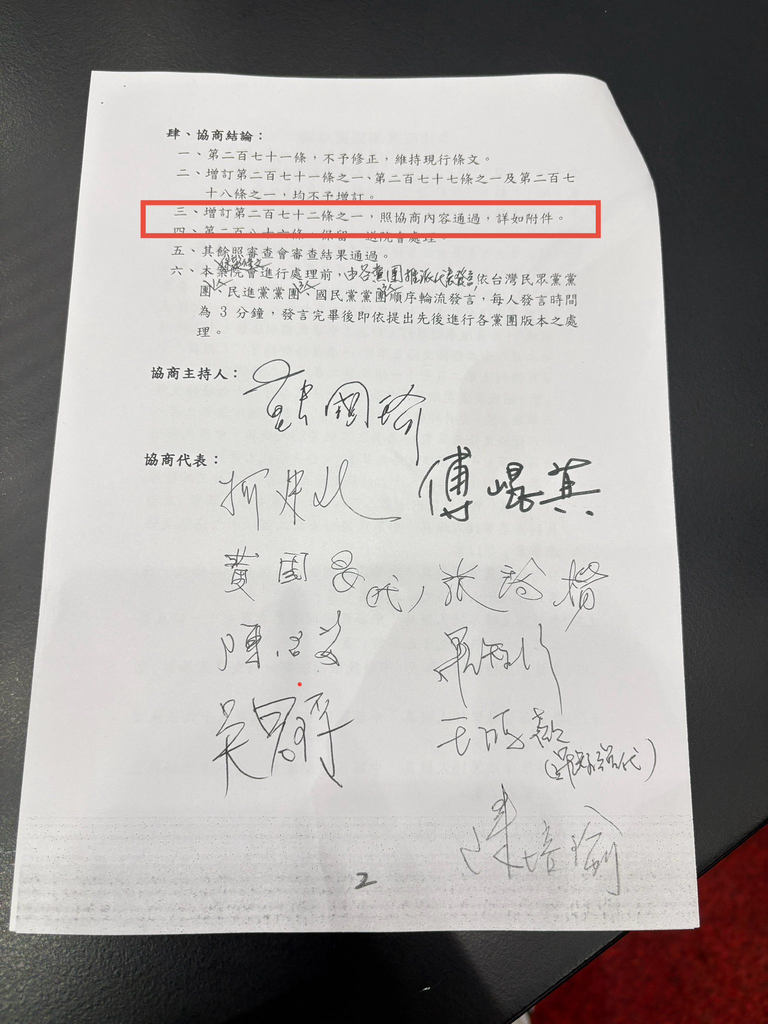 肆、協商結論：
一、第二百七十一條，不予修正，維持現行條文。
二、增訂第二百七十一條之一、第二百七十七條之一及第二百七
十八條之一，均不予增訂。
三、增訂第二百七十二條之一，照協商內容通過，詳如附件。
四、第二百八十六條，保留，送院會處理。
五、其餘照審查會審查結果通過。
保留條文
六、本案院會進行處理前，由各黨團推派代表發言依台灣民眾黨黨
團、民進黨黨團、國民黨黨團順序輪流發言，每人發言時間
為 3 分鐘，發言完畢後即依提出先後進行各黨團版本之處
理。
協商主持人：
韓國瑜
協商代表：
柯建銘 傅崐萁
黃國昌(代) 張啓楷
吳思瑤
(代)
陳培瑜
2